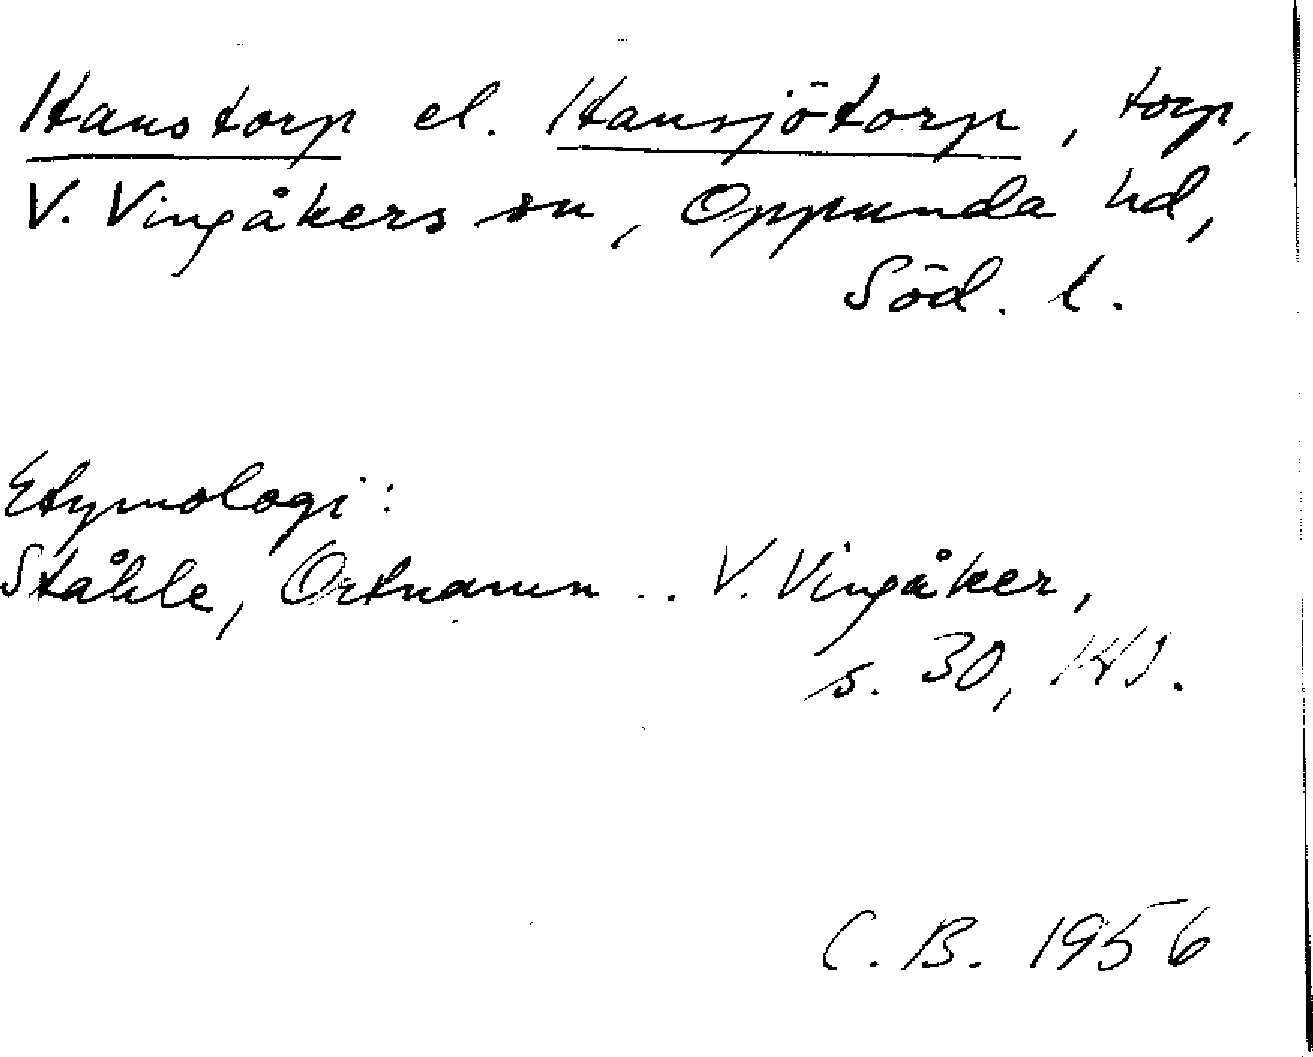 Hanstorp el. Hansjötorp, torp,
V. Vingåkers sn, Oppunda hd,
Söd. l.
Etymologi:
Ståhle, Ortnamn .. V. Vingåker,
s. 30, 141.
C. B. 1956